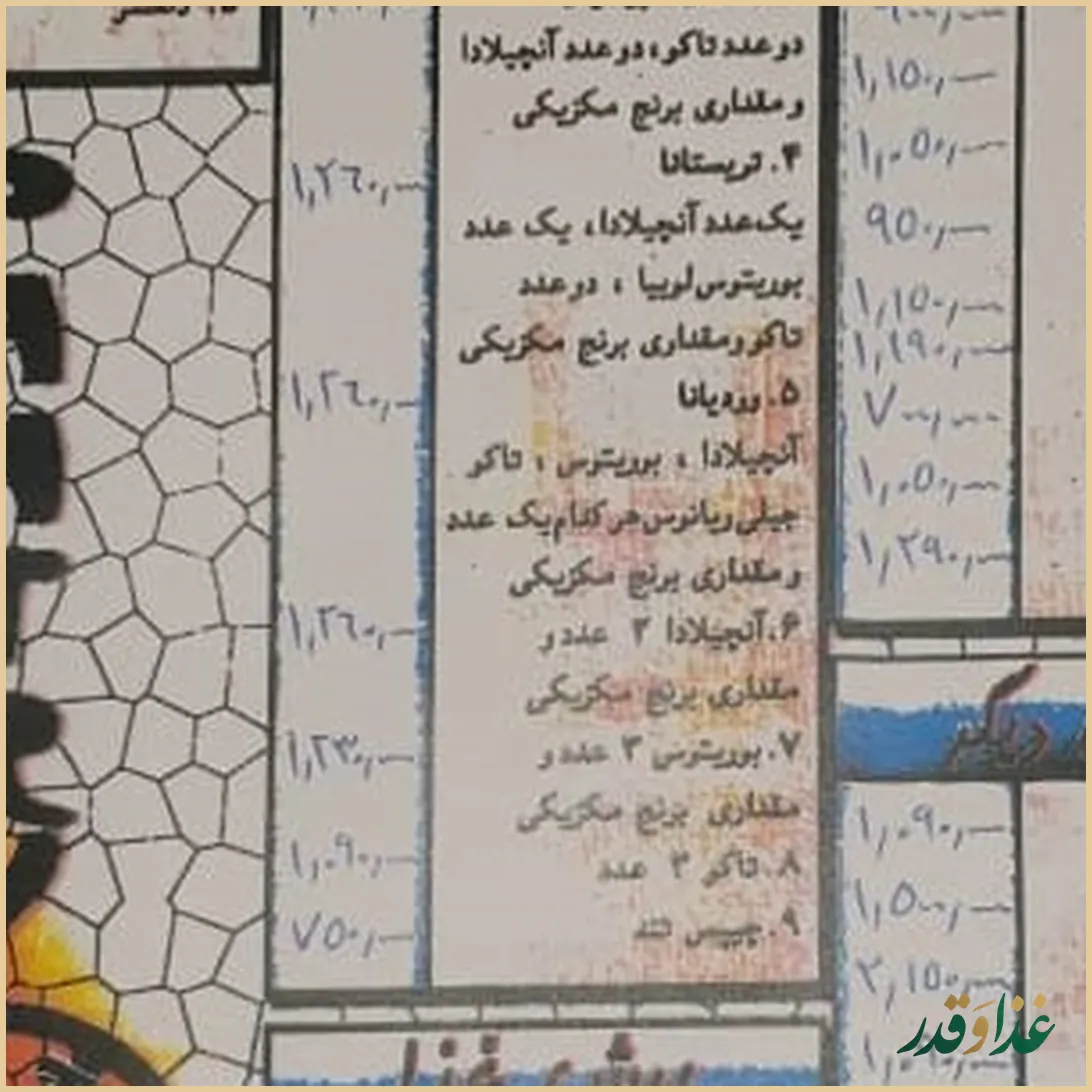 دو عدد تاکو، دو عدد آنچیلادا
و مقداری برنج مکزیکی
۴. تریستانا
۱,۲٦۰,—
یک عدد آنچیلادا، یک عدد
بوریتوس لوبیا ، دو عدد
تاکو و مقداری برنج مکزیکی
۵. وردیانا
۱,۲٦۰,—
آنچیلادا ، بوریتوس ، تاکو
چیلی ریانوس هر کدام یک عدد
و مقداری برنج مکزیکی
۶. آنچیلادا ۳ عدد و
۱,۲٦۰,—
مقداری برنج مکزیکی
۷. بوریتوس ۳ عدد و
۱,۲۳۰,—
مقداری برنج مکزیکی
۸. تاکو ۳ عدد
۱,۰۹۰,—
۹. چیپس تند
۷۵۰,—
۱,۱۵۰,—
۱,۰۵۰,—
۹۵۰,—
۱,۱۵۰,—
۱,۱۹۰,—
۷۰۰,—
۱,۰۵۰,—
۱,۲۹۰,—
دیگر
۱,۰۹۰,—
۱,۵۰۰,—
۲,۱۵۰,—
پیش غذا
غذا و قدر